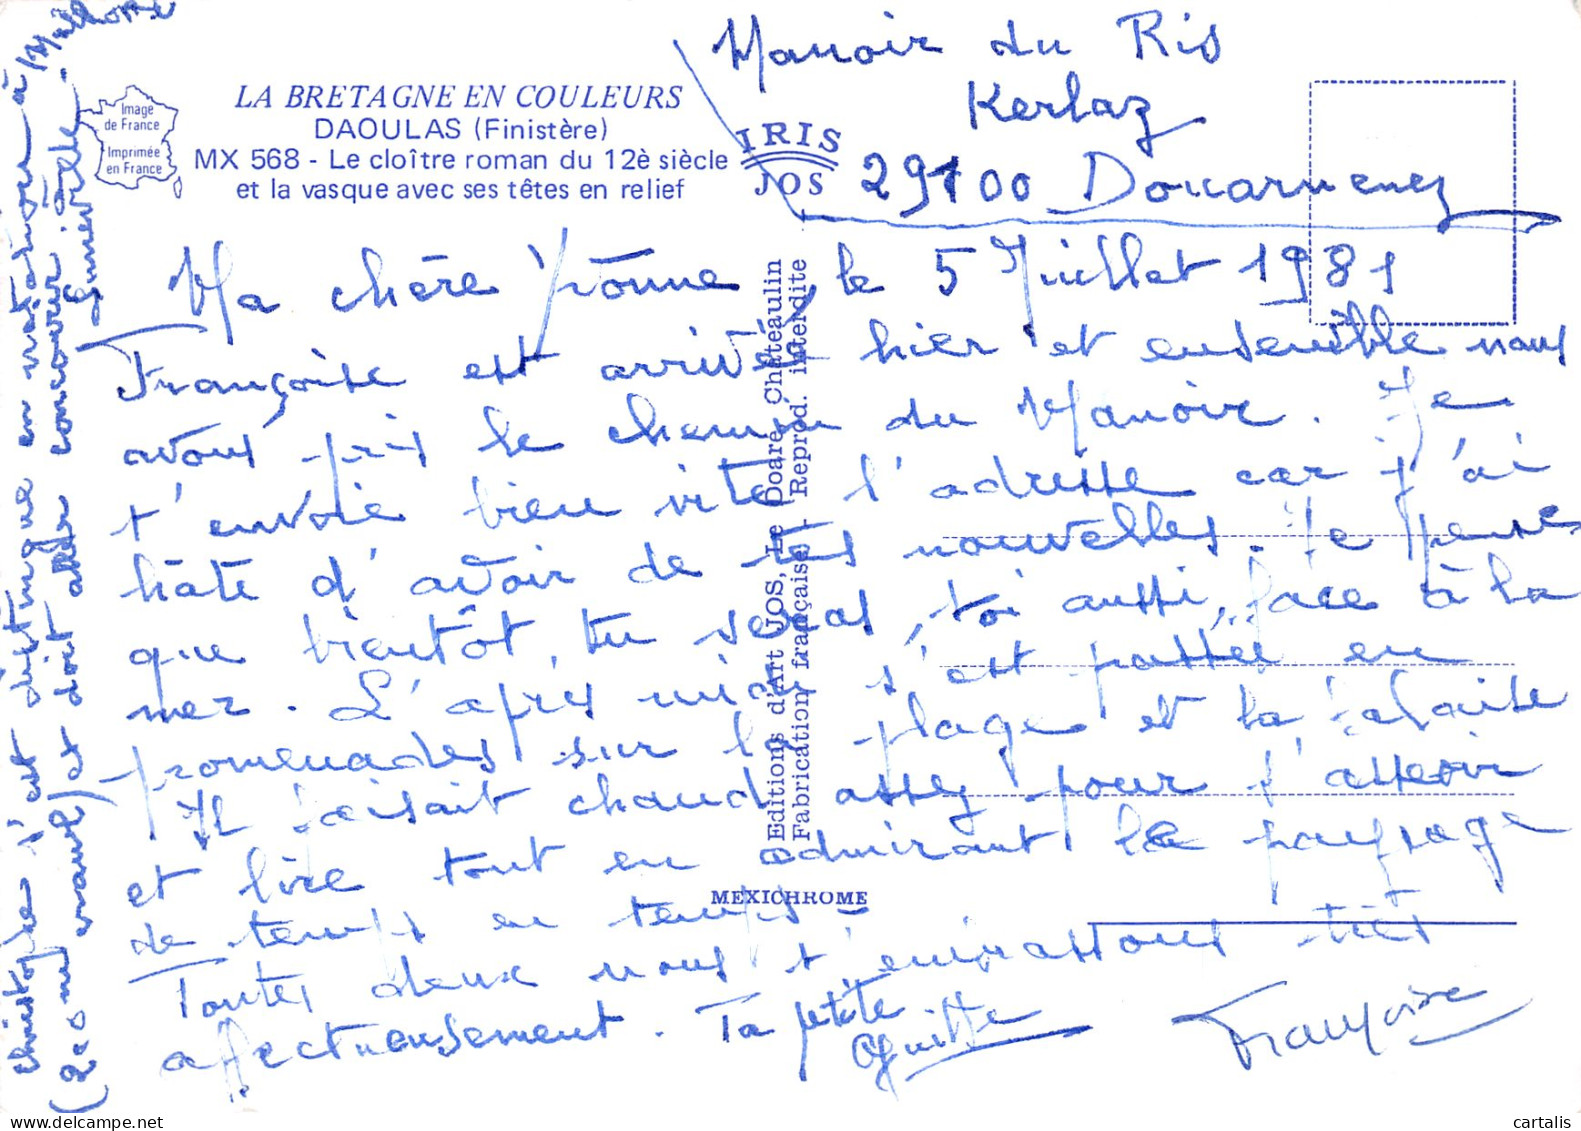 Manoir du Ris
Kerlaz
29100 Douarnenez
LA BRETAGNE EN COULEURS
DAOULAS (Finistère)
MX 568 - Le cloître roman du 12è siècle
et la vasque avec ses têtes en relief
Image
de France
Imprimée
en France
IRIS
JOS
le 5 Juillet 1981
Ma chère Yvonne
Françoise est arrivée hier et ensemble nous
avons pris le chemin du Manoir. Je
t'envoie bien vite l'adresse car j'ai
hâte d'avoir de tes nouvelles. Je pense
que bientôt, tu seras, toi aussi, face à la
mer. L'après midi s'est passée en
promenades sur la plage et la falaise
Il faisait chaud assez pour s'asseoir
et lire tout en admirant le paysage
de temps en temps.
Toutes deux nous t'embrassons très
affectueusement. Ta petite
Guitte Françoise
Christophe s'est distingué en natation à
(200 m) et doit aller concourir à
Editions d'Art JOS, Le Doaré, Châteaulin
Fabrication française - Reprod. interdite
MEXICHROME
cartalis